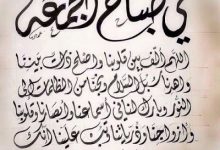 في صباح الجمعة
اللهم ألف بين قلوبنا واصلح ذات بيننا
واهدنا سبل السلام ونجنا من الظلمات إلى
النور وبارك لنا في أسماعنا وابصارنا وقلوبنا
وأزواجنا وذرياتنا وتب علينا إنك